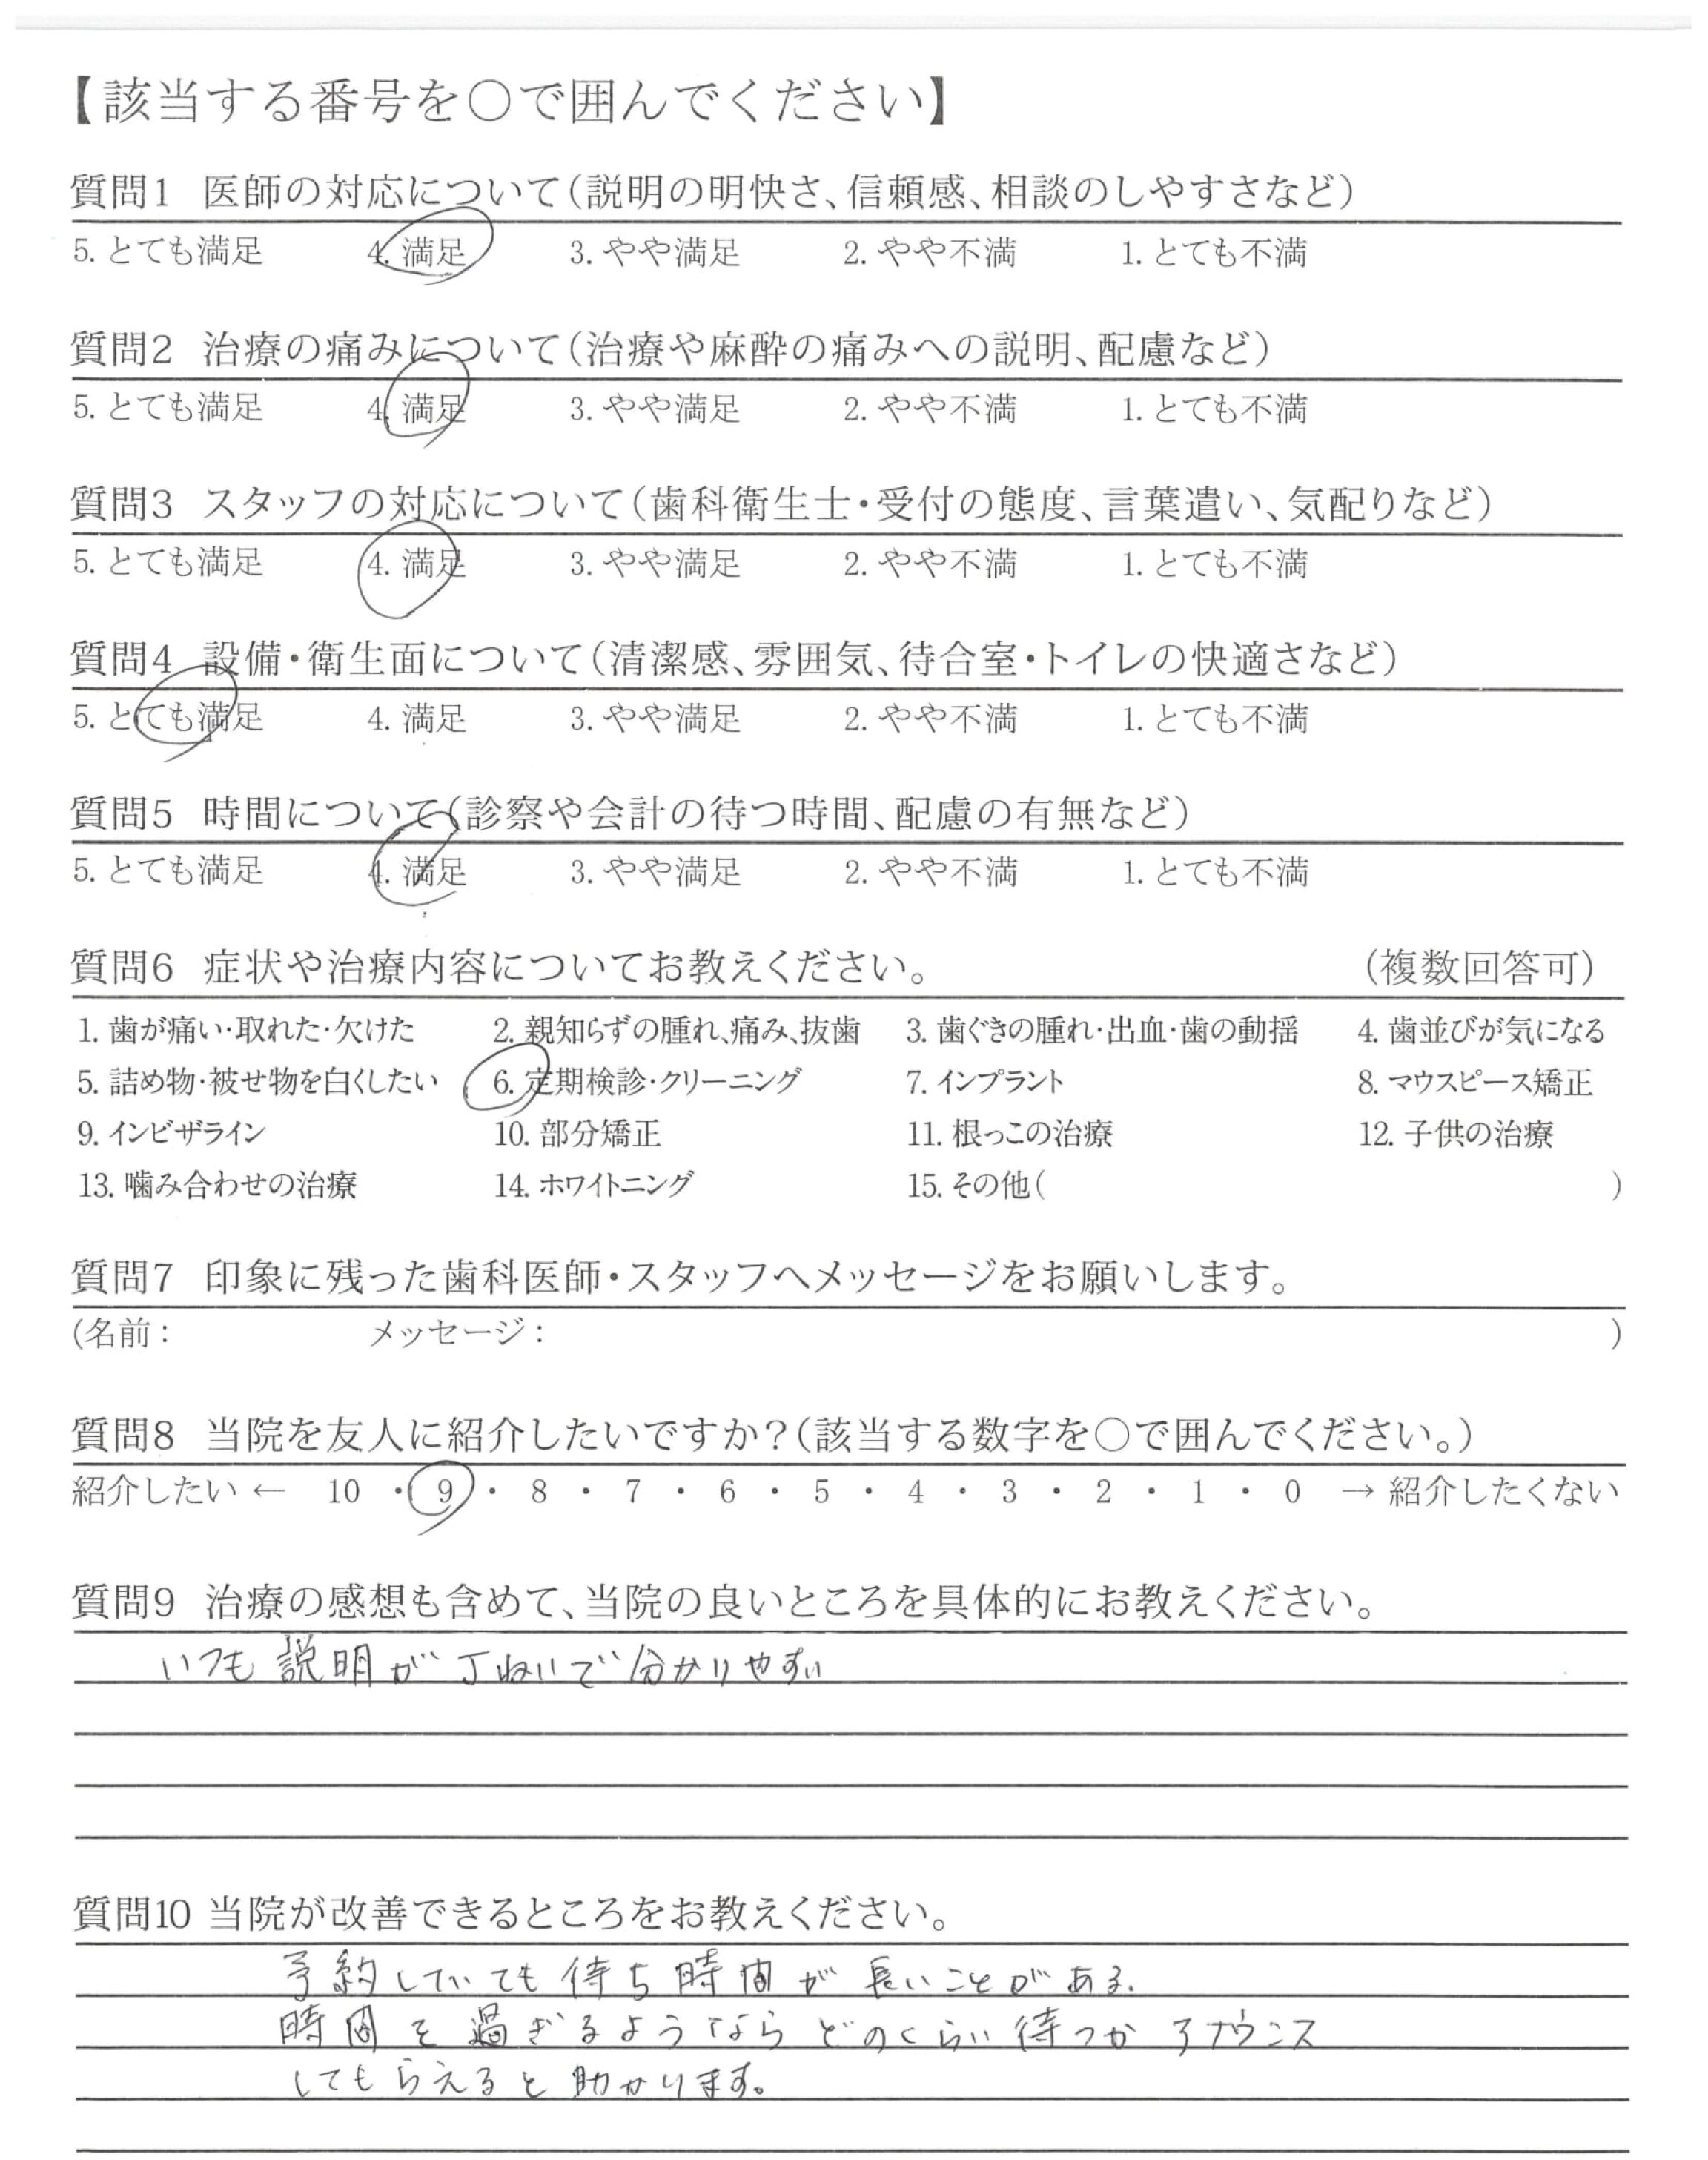 【該当する番号を○で囲んでください】
質問1 医師の対応について（説明の明快さ、信頼感、相談のしやすさなど）
5. とても満足 4. 満足 3. やや満足 2. やや不満 1. とても不満
質問2 治療の痛みについて（治療や麻酔の痛みへの説明、配慮など）
5. とても満足 4. 満足 3. やや満足 2. やや不満 1. とても不満
質問3 スタッフの対応について（歯科衛生士・受付の態度、言葉遣い、気配りなど）
5. とても満足 4. 満足 3. やや満足 2. やや不満 1. とても不満
質問4 設備・衛生面について（清潔感、雰囲気、待合室・トイレの快適さなど）
5. とても満足 4. 満足 3. やや満足 2. やや不満 1. とても不満
質問5 時間について（診察や会計の待つ時間、配慮の有無など）
5. とても満足 4. 満足 3. やや満足 2. やや不満 1. とても不満
質問6 症状や治療内容についてお教えください。 （複数回答可）
1. 歯が痛い・取れた・欠けた 2. 親知らずの腫れ、痛み、抜歯 3. 歯ぐきの腫れ・出血・歯の動揺 4. 歯並びが気になる
5. 詰め物・被せ物を白くしたい 6. 定期検診・クリーニング 7. インプラント 8. マウスピース矯正
9. インビザライン 10. 部分矯正 11. 根っこの治療 12. 子供の治療
13. 噛み合わせの治療 14. ホワイトニング 15. その他（ ）
質問7 印象に残った歯科医師・スタッフへメッセージをお願いします。
（名前： メッセージ： ）
質問8 当院を友人に紹介したいですか？（該当する数字を○で囲んでください。）
紹介したい ← 10 ・ 9 ・ 8 ・ 7 ・ 6 ・ 5 ・ 4 ・ 3 ・ 2 ・ 1 ・ 0 → 紹介したくない
質問9 治療の感想も含めて、当院の良いところを具体的にお教えください。
いつも説明が丁ねいで分かりやすい
質問10 当院が改善できるところをお教えください。
予約していても待ち時間が長いことがある.
時間を過ぎるようならどのくらい待つかアナウンス
してもらえると助かります。